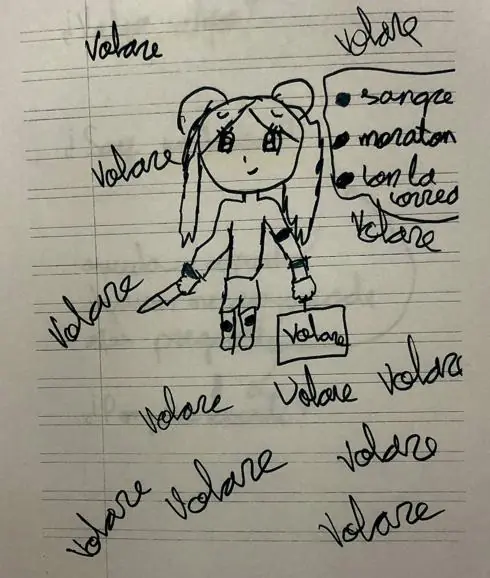 Volare
Volare
sangre
moraton
Volare
con la
correa
Volare
Volare
Volare
Volare
Volare
Volare
Volare
Volare
Volare
Volare